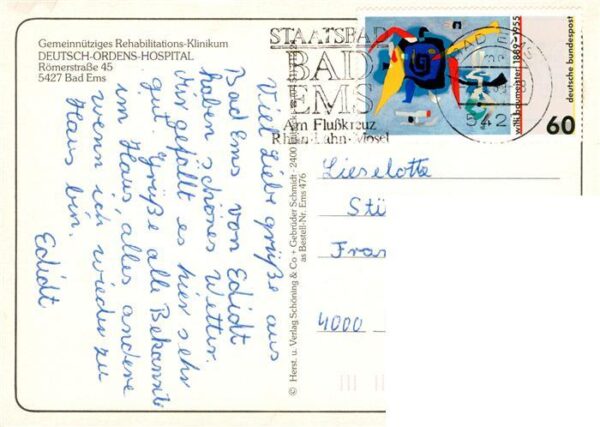 Gemeinnütziges Rehabilitations-Klinikum
DEUTSCH-ORDENS-HOSPITAL
Römerstraße 45
5427 Bad Ems
Viel Liebe grüße aus
Bad Ems von Edidt
haben schönes Wetter.
Mir gefällt es hier sehr
gut. Grüße alle Bekannte
im Haus, alles andere
wenn ich wieder zu
Haus bin.
Edidt
© Herst. u. Verlag Schöning & Co + Gebrüder Schmidt · 2400
as Bestell-Nr. Ems 476
STAATSBAD
BAD
EMS
Am Flußkreuz
Rhein-Lahn-Mosel
BAD EMS
542
willi baumeister 1889-1955
deutsche bundespost
60
Lieselotte
Stü
Fran
4000